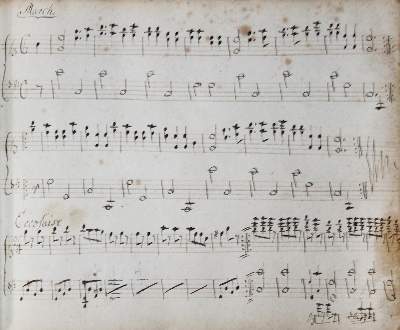 March.
Ecossaise